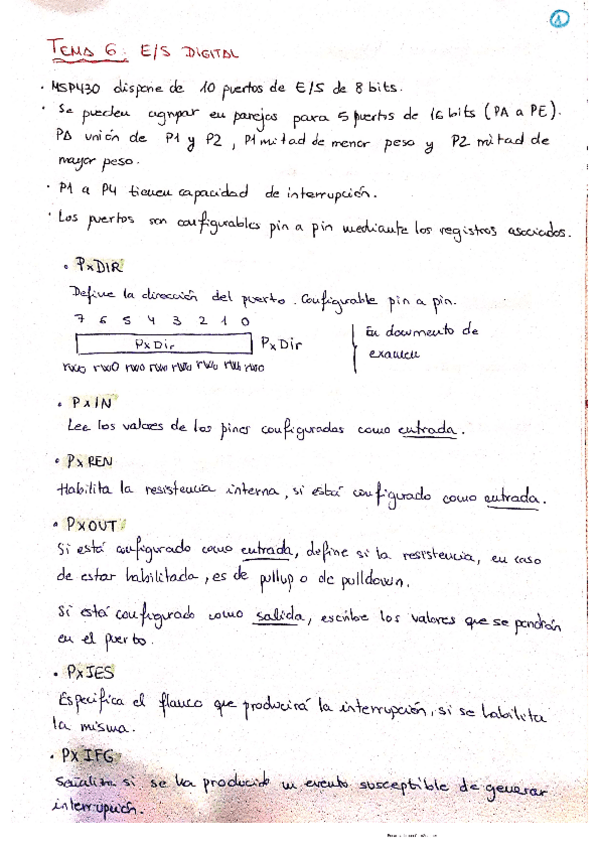 1
TEMA 6: E/S DIGITAL
· MSP430 dispone de 10 puertos de E/S de 8 bits.
· Se pueden agrupar en parejas para 5 puertos de 16 bits (PA a PE).
PA unión de P1 y P2, P1 mitad de menor peso y P2 mitad de
mayor peso.
· P1 a P4 tienen capacidad de interrupción.
· Los puertos son configurables pin a pin mediante los registros asociados.
· PxDIR
Define la dirección del puerto. Configurable pin a pin.
7 6 5 4 3 2 1 0
PxDir PxDir
rw0 rw0 rw0 rw0 rw0 rw0 rw0 rw0
En documento de
examen
· PxIN
Lee los valores de los pines configurados como entrada.
· PxREN
Habilita la resistencia interna, si está configurado como entrada.
· PXOUT
Si está configurado como entrada, define si la resistencia, en caso
de estar habilitada, es de pullup o de pulldown.
Si está configurado como salida, escribe los valores que se pondrán
en el puerto.
· PxIES
Especifica el flanco que producirá la interrupción, si se habilita
la misma.
· PX IFG
Señaliza si se ha producido un evento susceptible de generar
interrupción.